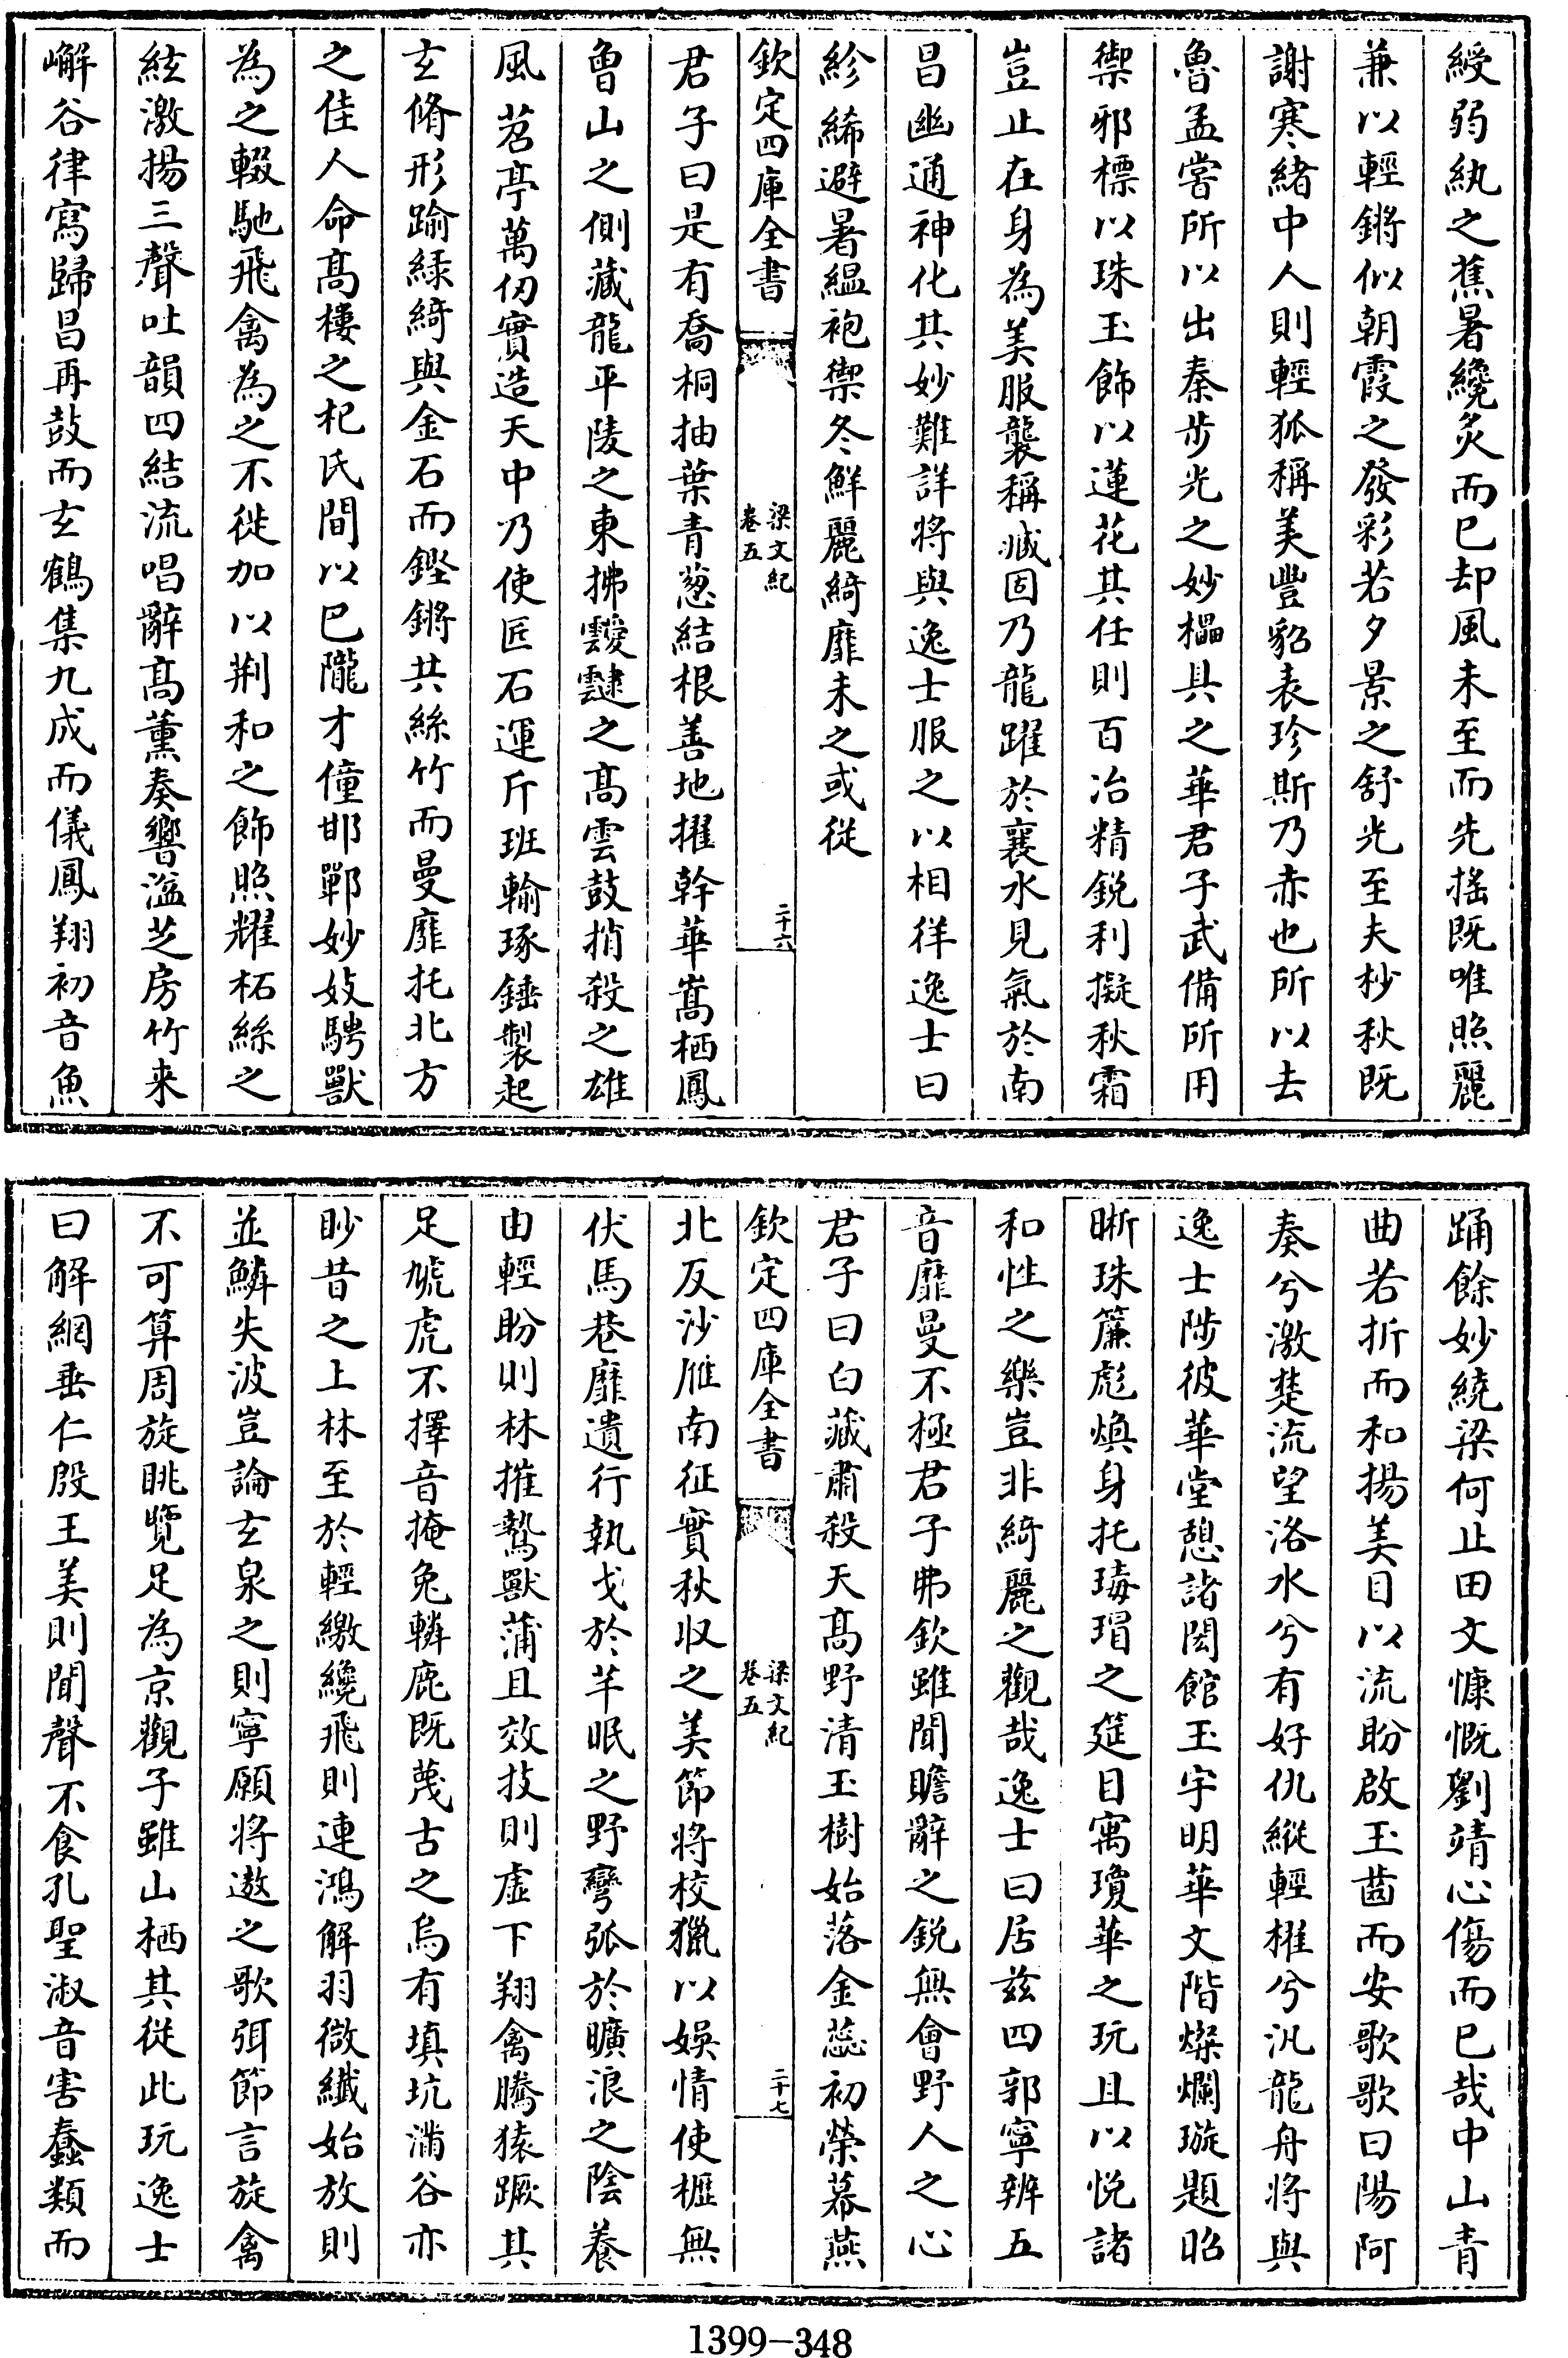 綬弱紈之蕉暑纔炙而已却風未至而先搖既唯照麗
兼以輕鏘似朝霞之發彩若夕景之舒光至夫杪秋既
謝寒緒中人則輕狐稱美豐貂表珍斯乃赤也所以去
魯孟嘗所以出秦步光之妙櫑具之華君子武備所用
禦邪標以珠玉飾以蓮花其任則百冶精鋭利擬秋霜
豈止在身為美服襲稱臧固乃龍躍於襄水見氣於南
昌幽通神化其妙難詳將與逸士服之以相徉逸士曰
紾絺避暑緼袍禦冬鮮麗綺靡未之或從
欽定四庫全書
梁文紀
卷五
二十六
君子曰是有喬桐抽葉青葱結根善地擢幹華嵩栖鳳
魯山之側藏龍平陵之東拂靉靆之高雲鼓捎殺之雄
風苕亭萬仞實造天中乃使匠石運斤班輸琢錘製起
玄脩形踰緑綺與金石而鏗鏘共絲竹而曼靡托北方
之佳人命高樓之杞氏間以巴隴才僮邯鄲妙妓騁獸
為之輟馳飛禽為之不徙加以荆和之飾照耀柘絲之
絃激揚三聲吐韻四結流唱辭高薰奏響溢芝房竹來
嶰谷律寫歸昌再鼓而玄鶴集九成而儀鳳翔初音魚
踊餘妙繞梁何止田文慷慨劉靖心傷而已哉中山青
曲若折而和揚美目以流盼啟玉齒而安歌歌曰陽阿
奏兮激楚流望洛水兮有好仇縱輕櫂兮汎龍舟將與
逸士陟彼華堂憩諸閎館玉宇明華文階燦爛璇題昭
晣珠簾彪煥身托瑇瑁之筵目寓瓊華之玩且以悦諸
和性之樂豈非綺麗之觀哉逸士曰居兹四郭寧辨五
音靡曼不極君子弗欽雖聞贍辭之鋭無會野人之心
君子曰白藏肅殺天高野清玉樹始落金蕊初榮幕燕
欽定四庫全書
梁文紀
卷五
二十七
北反沙雁南征實秋收之美節將校獵以娛情使櫪無
伏馬巷靡遺行執戈於芊眠之野彎弧於曠浪之陰養
由輕盼則林摧鷙獸蒲且效技則虛下翔禽騰猿蹶其
足虓虎不擇音掩兔轔鹿既蔑古之烏有填坑滿谷亦
眇昔之上林至於輕繳纔飛則連鴻解羽微纖始放則
並鱗失波豈論玄泉之則寧願將遨之歌弭節言旋禽
不可算周旋眺覽足為京觀子雖山栖其從此玩逸士
曰解網垂仁殷王美則聞聲不食孔聖淑音害蠢類而
1399-348